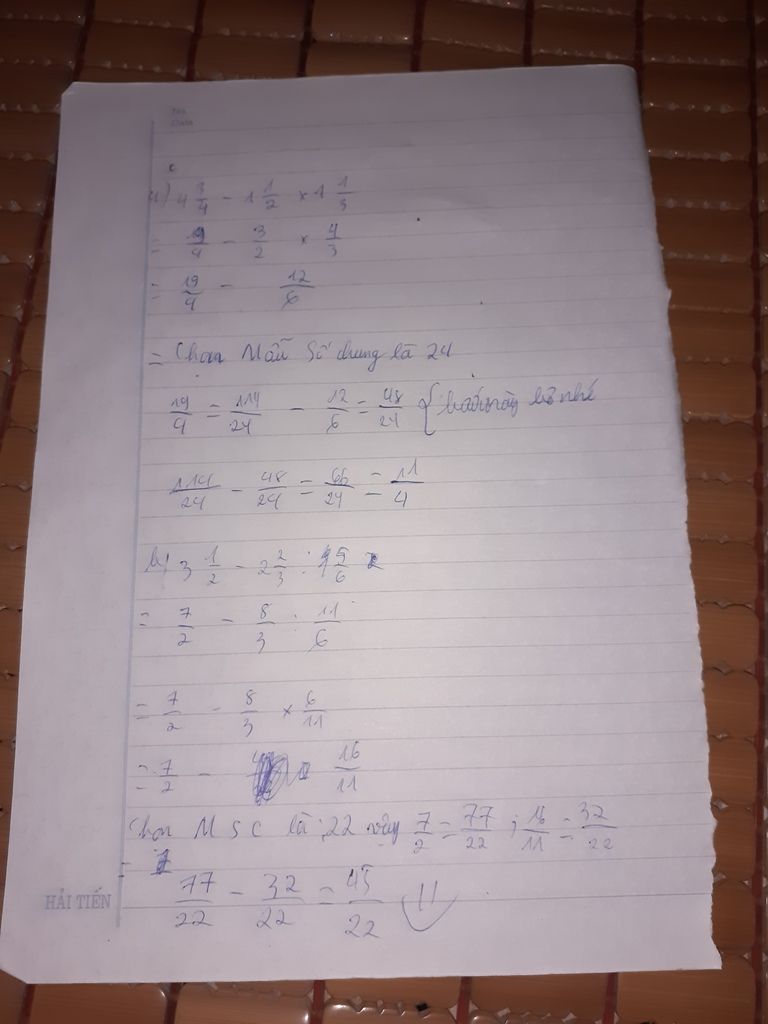 a) 4 3/4 - 1 1/2 × 1 1/3
= 19/4 - 3/2 × 4/3
= 19/4 - 12/6
= Chọn Mẫu Số chung là 24
19/4 = 114/24 - 12/6 = 48/24 {
114/24 - 48/24 = 66/24 = 11/4
b) 3 1/2 - 2 2/3 : 1 5/6
= 7/2 - 8/3 : 11/6
= 7/2 - 8/3 × 6/11
= 7/2 - 16/11
Chọn M S C là 22 7/2 = 77/22 ; 16/11 = 32/22
77/22 - 32/22 = 45/22
HẢI TIẾN